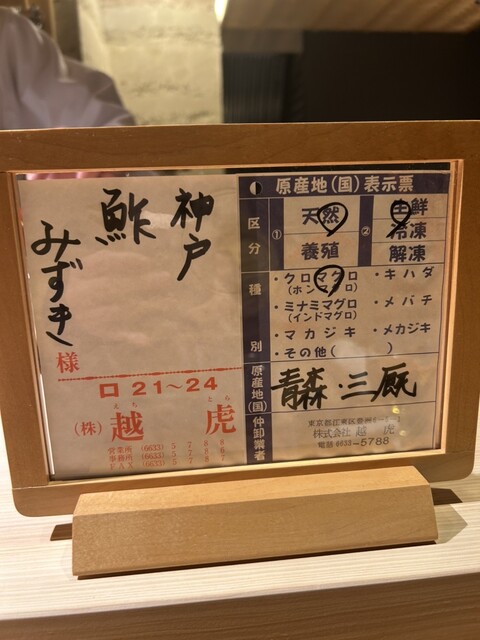 神戸
鮓
みずき
様
口 21〜24
えち とら
(株) 越虎
営業所 (6633)
事務所 (6633)
FAX (6633)
原産地(国)表示票
区分
① 天然
養殖
② 生鮮
冷凍
解凍
種別
・クロマグロ
(ホンマグロ)
・キハダ
・ミナミマグロ
(インドマグロ)
・メバチ
・マカジキ
・メカジキ
・その他( )
原産地(国)
青森・三厩
仲卸業者
東京都江東区豊洲
株式会社 越虎
電話 6633-5788